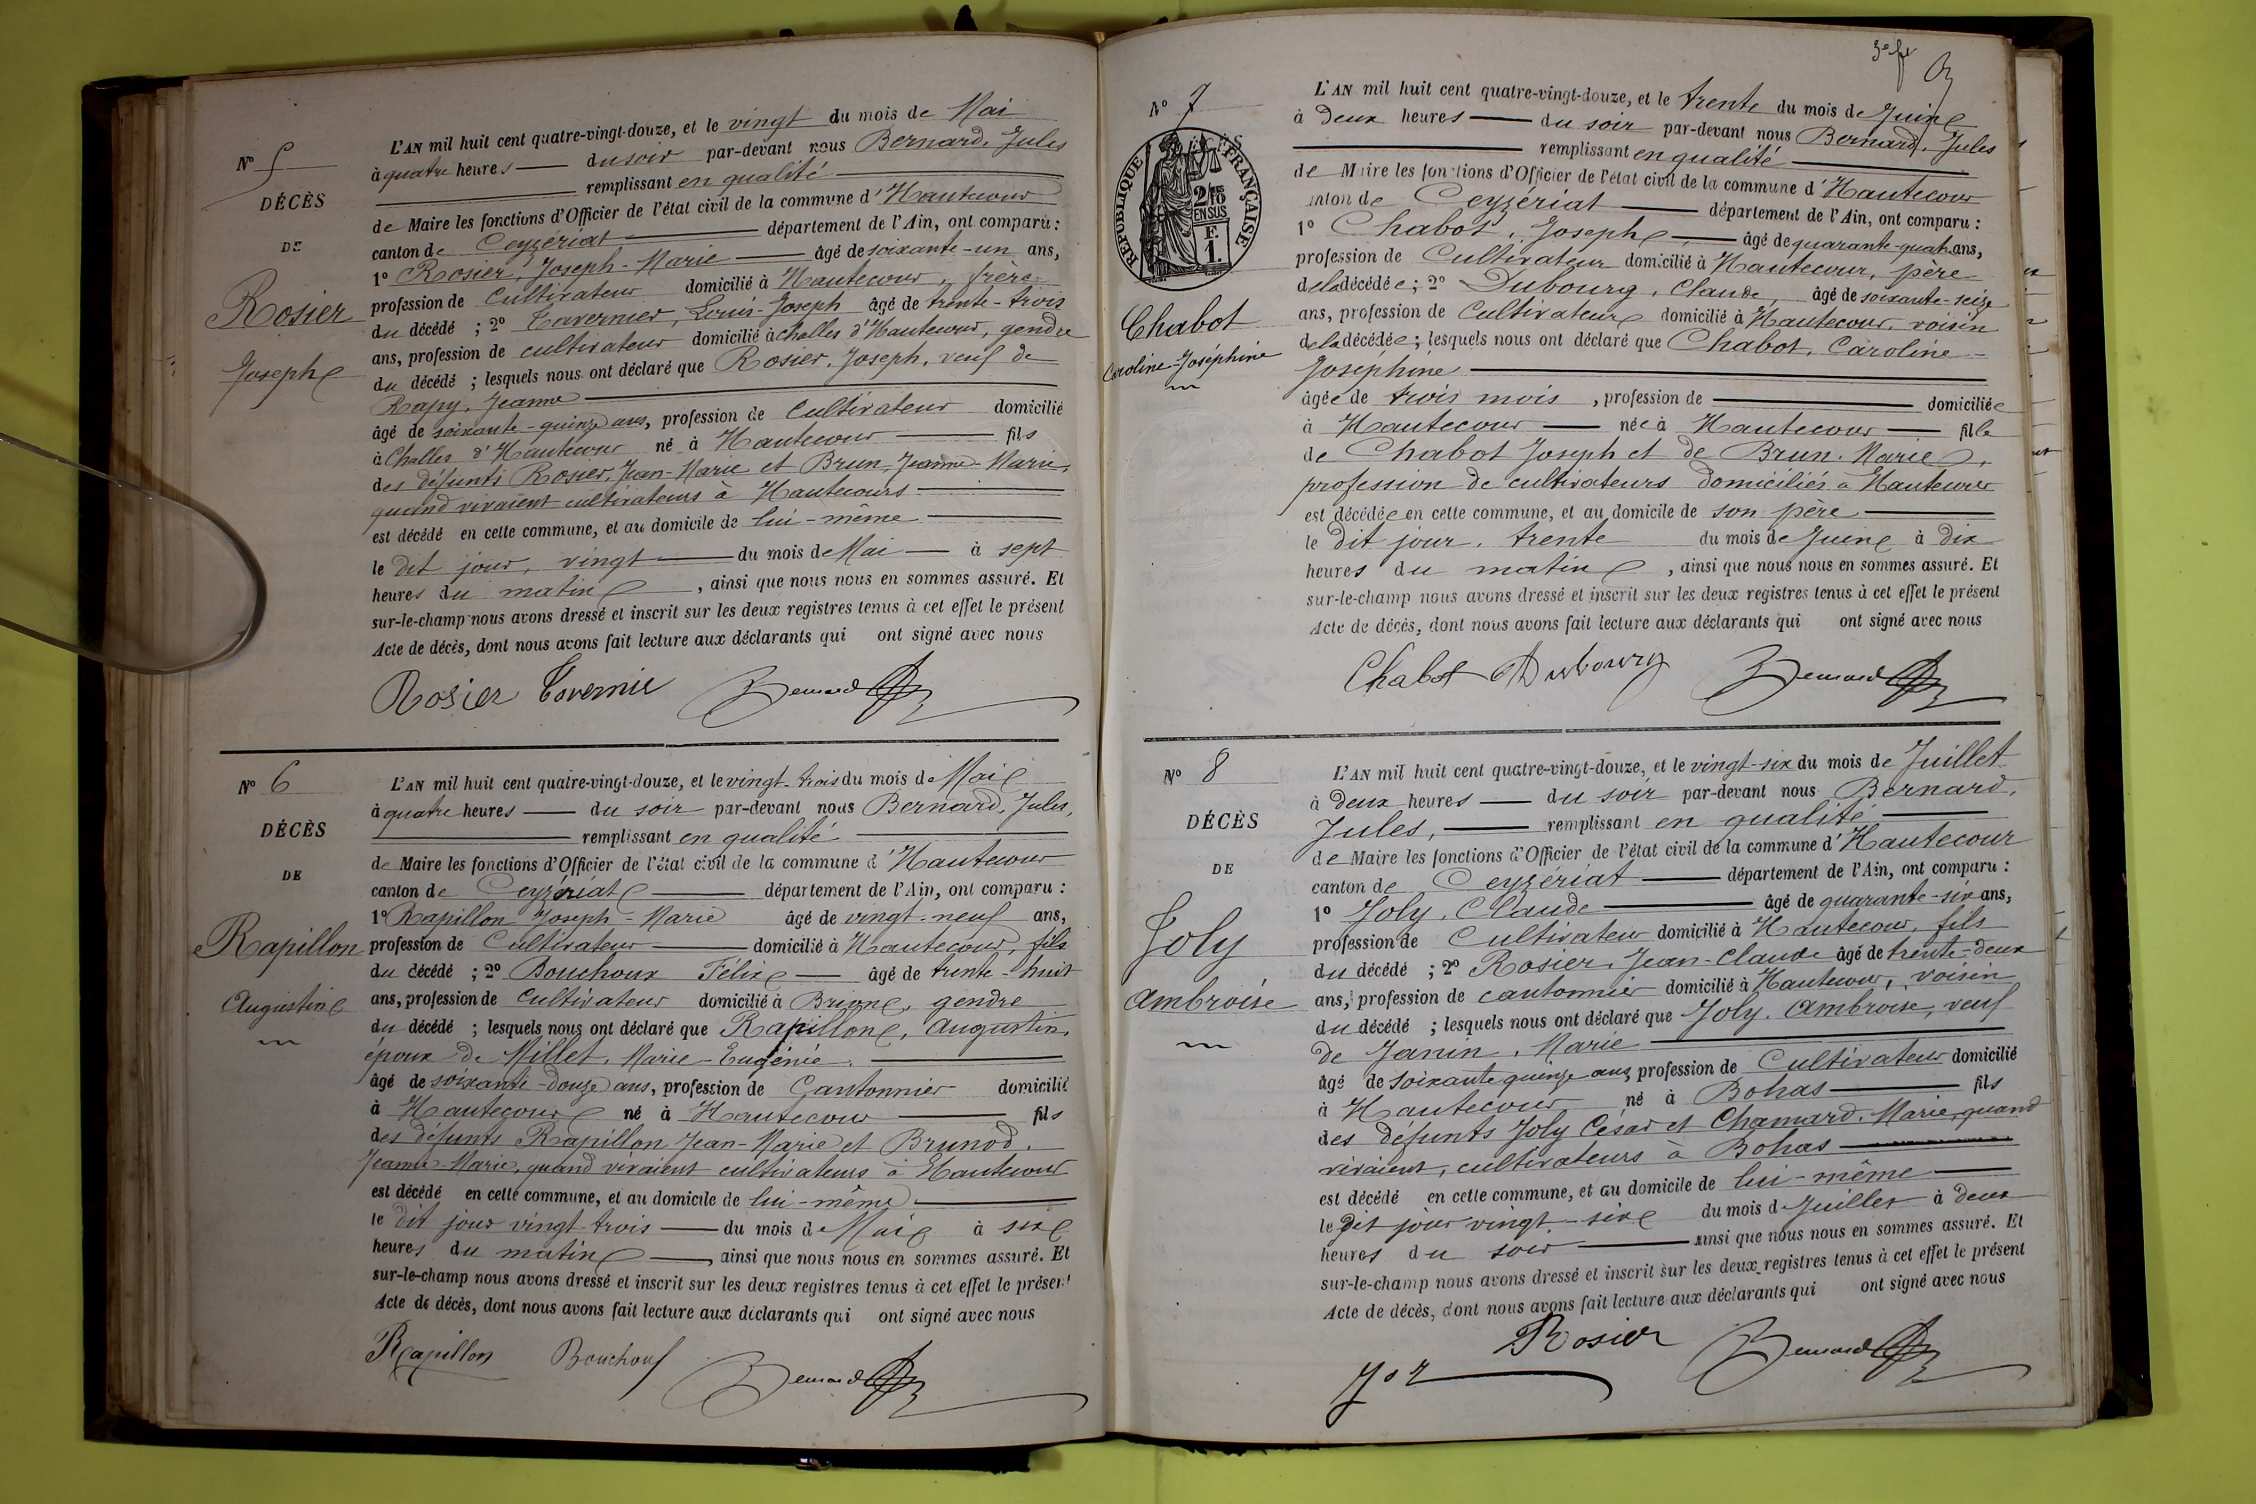 N° 5
DÉCÈS
DE
Rosier
Joseph
L'AN mil huit cent quatre-vingt-douze, et le vingt du mois de Mai
à quatre heures du soir par-devant nous Bernard, Jules
remplissant en qualité
de Maire les fonctions d'Officier de l'état civil de la commune d'Hautecour
canton de Ceyzériat département de l'Ain, ont comparu :
1° Rosier, Joseph-Marie âgé de soixante-un ans,
profession de Cultivateur domicilié à Hautecour, frère
du décédé ; 2° Tavernier, Louis-Joseph âgé de trente-trois
ans, profession de cultivateur domicilié à Challes d'Hautecour, gendre
du décédé ; lesquels nous ont déclaré que Rosier, Joseph, veuf de
Rapy, Jeanne
âgé de soixante-quinze ans, profession de Cultivateur domicilié
à Challes d'Hautecour né à Hautecour fils
des défunts Rosier, Jean-Marie et Brun, Jeanne-Marie,
quand vivaient cultivateurs à Hautecours
est décédé en cette commune, et au domicile de lui-même
le dit jour, vingt du mois de Mai à sept
heures du matin, ainsi que nous nous en sommes assuré. Et
sur-le-champ nous avons dressé et inscrit sur les deux registres tenus à cet effet le présent
Acte de décès, dont nous avons fait lecture aux déclarants qui ont signé avec nous
Rosier Tavernier Bernard
N° 6
DÉCÈS
DE
Rapillon
Augustin
L'AN mil huit cent quatre-vingt-douze, et le vingt-trois du mois de Mai
à quatre heures du soir par-devant nous Bernard, Jules,
remplissant en qualité
de Maire les fonctions d'Officier de l'état civil de la commune d'Hautecour
canton de Ceyzériat département de l'Ain, ont comparu :
1° Rapillon Joseph-Marie âgé de vingt-neuf ans,
profession de Cultivateur domicilié à Hautecour, fils
du décédé ; 2° Bouchoux Félix âgé de trente-huit
ans, profession de cultivateur domicilié à Brion, gendre
du décédé ; lesquels nous ont déclaré que Rapillon, Augustin,
époux de Millet, Marie-Eugénie.
âgé de soixante-douze ans, profession de Cantonnier domicilié
à Hautecour né à Hautecour fils
des défunts Rapillon Jean-Marie et Brunod,
Jeanne-Marie, quand vivaient cultivateurs à Hautecour
est décédé en cette commune, et au domicile de lui-même
le dit jour vingt trois du mois de Mai à six
heures du matin, ainsi que nous nous en sommes assuré. Et
sur-le-champ nous avons dressé et inscrit sur les deux registres tenus à cet effet le présent
Acte de décès, dont nous avons fait lecture aux déclarants qui ont signé avec nous
Rapillon Bouchoux Bernard
N° 7
RÉPUBLIQUE FRANÇAISE
2/10
EN SUS
F.
1.
Chabot
Caroline-Joséphine
L'AN mil huit cent quatre-vingt-douze, et le trente du mois de Juin
à deux heures du soir par-devant nous Bernard, Jules
remplissant en qualité
de Maire les fonctions d'Officier de l'état civil de la commune d'Hautecour
canton de Ceyzériat département de l'Ain, ont comparu :
1° Chabot, Joseph, âgé de quarante-quatre ans,
profession de Cultivateur domicilié à Hautecour, père
de la décédée ; 2° Dubourg, Claude, âgé de soixante-seize
ans, profession de Cultivateur domicilié à Hautecour, voisin
de la décédée ; lesquels nous ont déclaré que Chabot, Caroline-
Joséphine
âgée de trois mois, profession de domiciliée
à Hautecour née à Hautecour fille
de Chabot Joseph et de Brun, Marie,
profession de cultivateurs domiciliés à Hautecour
est décédée en cette commune, et au domicile de son père
le dit jour, trente du mois de Juin à dix
heures du matin, ainsi que nous nous en sommes assuré. Et
sur-le-champ nous avons dressé et inscrit sur les deux registres tenus à cet effet le présent
Acte de décès, dont nous avons fait lecture aux déclarants qui ont signé avec nous
Chabot Dubourg Bernard
N° 8
DÉCÈS
DE
Joly
Ambroise
L'AN mil huit cent quatre-vingt-douze, et le vingt-six du mois de Juillet
à deux heures du soir par-devant nous Bernard,
Jules, remplissant en qualité
de Maire les fonctions d'Officier de l'état civil de la commune d'Hautecour
canton de Ceyzériat département de l'Ain, ont comparu :
1° Joly, Claude âgé de quarante-six ans,
profession de Cultivateur domicilié à Hautecour, fils
du décédé ; 2° Rosier, Jean-Claude âgé de trente-deux
ans, profession de cantonnier domicilié à Hautecour, voisin
du décédé ; lesquels nous ont déclaré que Joly, Ambroise, veuf
de Janin, Marie
âgé de soixante quinze ans, profession de Cultivateur domicilié
à Hautecour né à Bohas fils
des défunts Joly César et Chamard, Marie, quand
vivaient, cultivateurs à Bohas
est décédé en cette commune, et au domicile de lui-même
le dit jour vingt-six du mois de Juillet à deux
heures du soir ainsi que nous nous en sommes assuré. Et
sur-le-champ nous avons dressé et inscrit sur les deux registres tenus à cet effet le présent
Acte de décès, dont nous avons fait lecture aux déclarants qui ont signé avec nous
Rosier Bernard